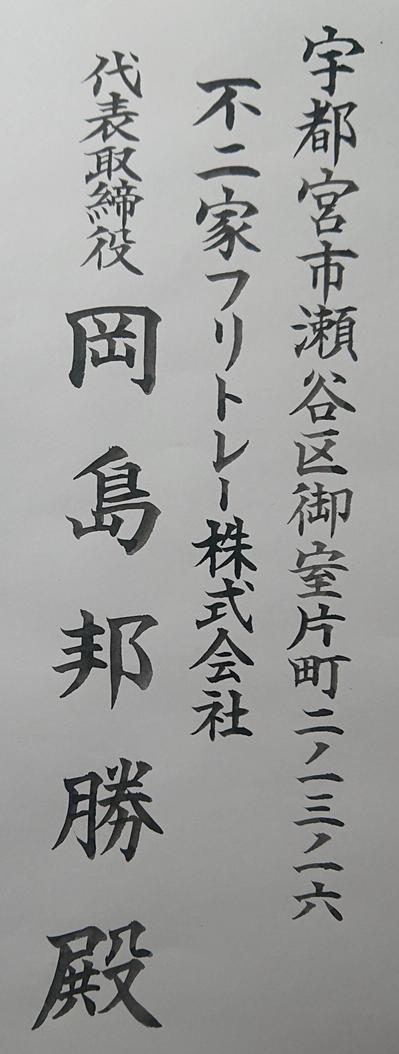 宇都宮市瀬谷区御室片町二ノ一三ノ一六
不二家フリトレー株式会社
代表取締役 岡島邦勝殿